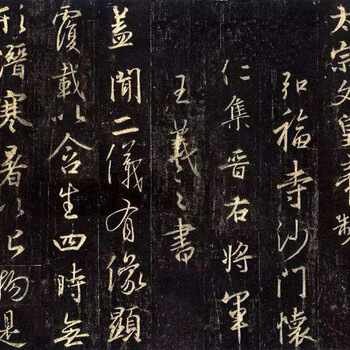 太宗文皇帝製
弘福寺沙門懷
仁集晉右將軍
王羲之書
蓋聞二儀有像顯
覆載以含生四時無
形潛寒暑以化物是